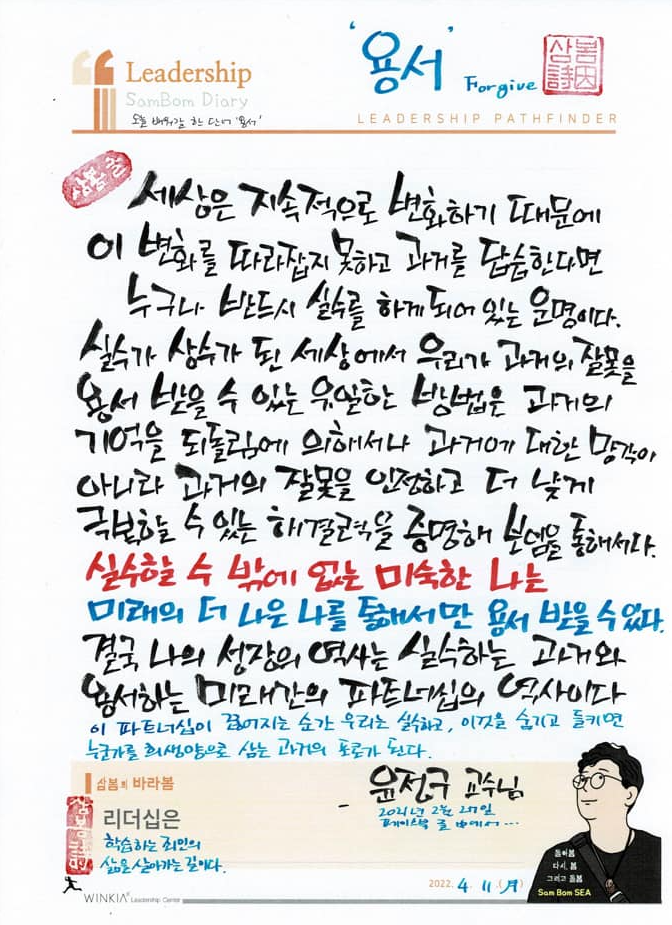 '용서'
Forgive
삼봄詩因
Leadership
SamBom Diary
오늘 배워갈 한 단어 '용서'
LEADERSHIP PATHFINDER
삼봄글
세상은 지속적으로 변화하기 때문에
이 변화를 따라잡지 못하고 과거를 답습한다면
누구나 반드시 실수를 하게 되어 있는 운명이다.
실수가 상수가 된 세상에서 우리가 과거의 잘못을
용서 받을 수 있는 유일한 방법은 과거의
기억을 되돌림에 의해서나 과거에 대한 망각이
아니라 과거의 잘못을 인정하고 더 낫게
극복할 수 있는 해결력을 증명해 보임을 통해서다.
실수할 수 밖에 없는 미숙한 나는
미래의 더 나은 나를 통해서만 용서 받을 수 있다.
결국 나의 성장의 역사는 실수하는 과거와
용서하는 미래간의 파트너십의 역사이다
이 파트너십이 끊어지는 순간 우리는 실수하고, 이것을 숨기고 들키면
누군가를 희생양으로 삼는 과거의 포로가 된다.
삼봄의 바라봄
리더십은
학습하는 죄인의
삶을 살아가는 길이다.
- 윤정구 교수님
2021년 2월 27일
페이스북 글 中에서...
돌아봄
다시, 봄
그리고 돌봄
Sam Bom SEA
2022. 4. 11.(月)
WINKIA Leadership Center